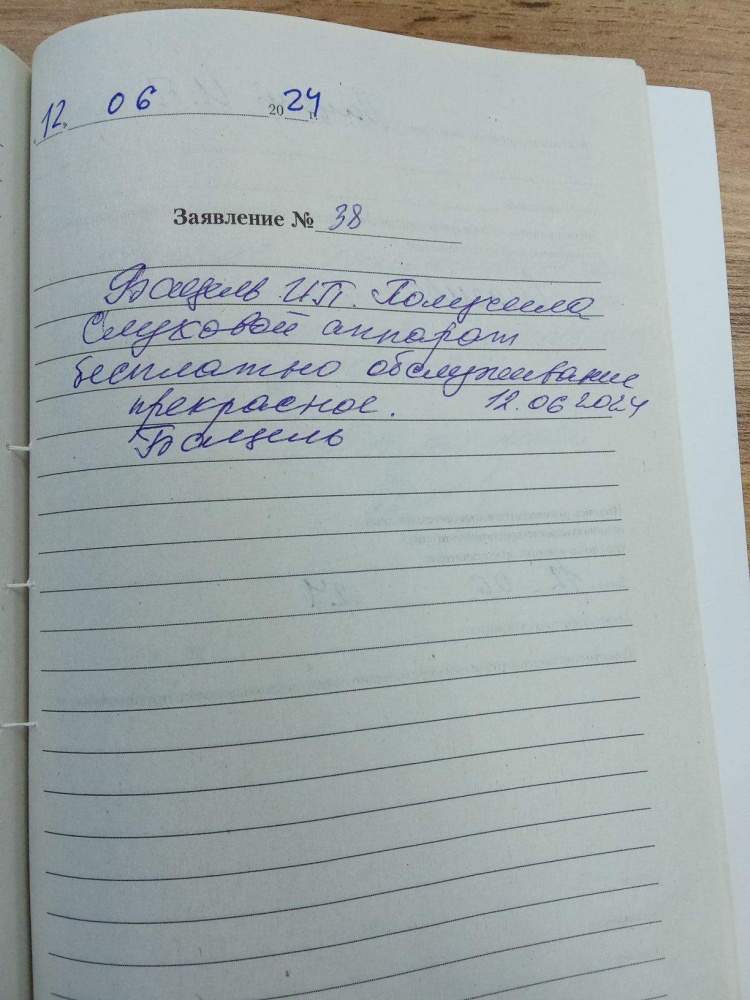 12 06 2024 г.
Заявление № 38
И.П. Получила
Слуховой аппарат
бесплатно обслуживание
прекрасное. 12.06 2024